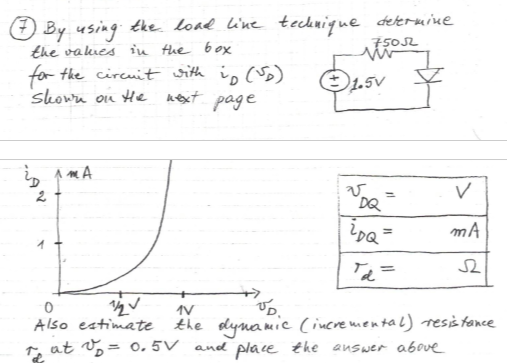 ⑦ By using the load line technique determine
the values in the box
for the circuit with i_D (v_D)
shown on the next page
750Ω
1.5V
i_D mA
2
1
0
1/2 V
1V
v_D
v_DQ = V
i_DQ = mA
r_d = Ω
Also estimate the dynamic (incremental) resistance
r_d at v_D = 0.5V and place the answer above